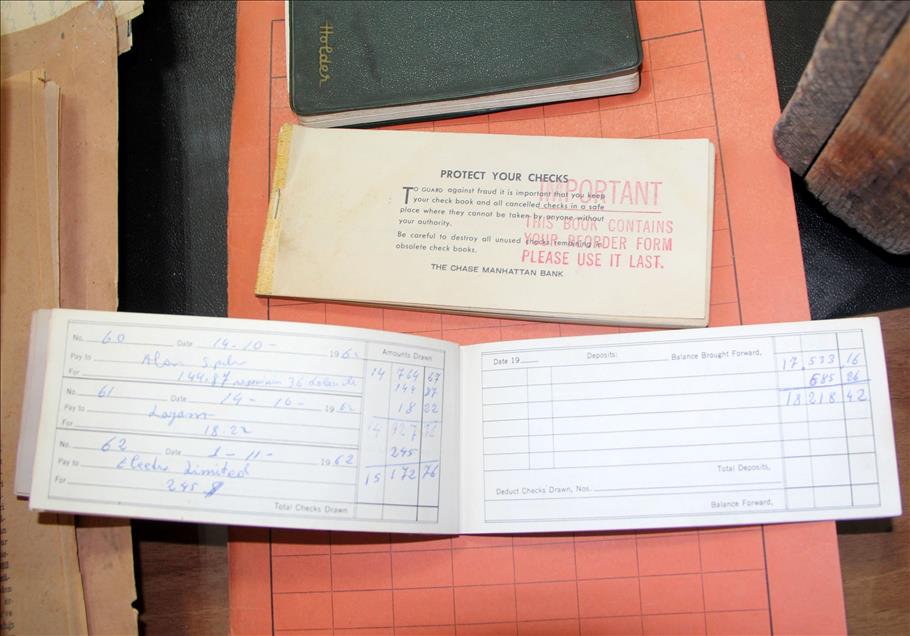 Holder
PROTECT YOUR CHECKS
TO GUARD against fraud it is important that you keep
your check book and all cancelled checks in a safe
place where they cannot be taken by anyone without
your authority.
Be careful to destroy all unused checks remaining in
obsolete check books.
THE CHASE MANHATTAN BANK
IMPORTANT
THIS BOOK CONTAINS
YOUR REORDER FORM
PLEASE USE IT LAST.
No. 60 Date 14-10- 1962
Pay to Alan
For 144.87 36
No. 61 Date 14-10- 1962
Pay to
For 18.22
No. 62 Date 1-11- 1962
Pay to Electr Limited
For 245
Total Checks Drawn
Amounts Drawn
14 764 67
144 87
18 22
14 927 76
245
15 172 76
Date 19 Deposits: Balance Brought Forward,
17,533 16
685 26
18 218 42
Total Deposits,
Deduct Checks Drawn, Nos.
Balance Forward,